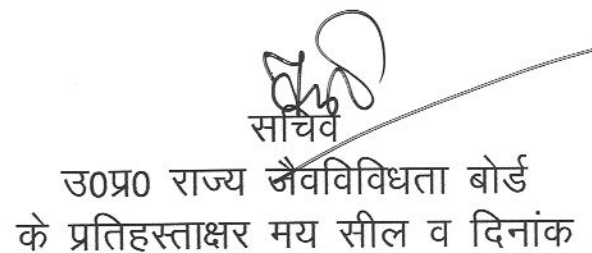 सचिव
उ0प्र0 राज्य जैवविविधता बोर्ड
के प्रतिहस्ताक्षर मय सील व दिनांक